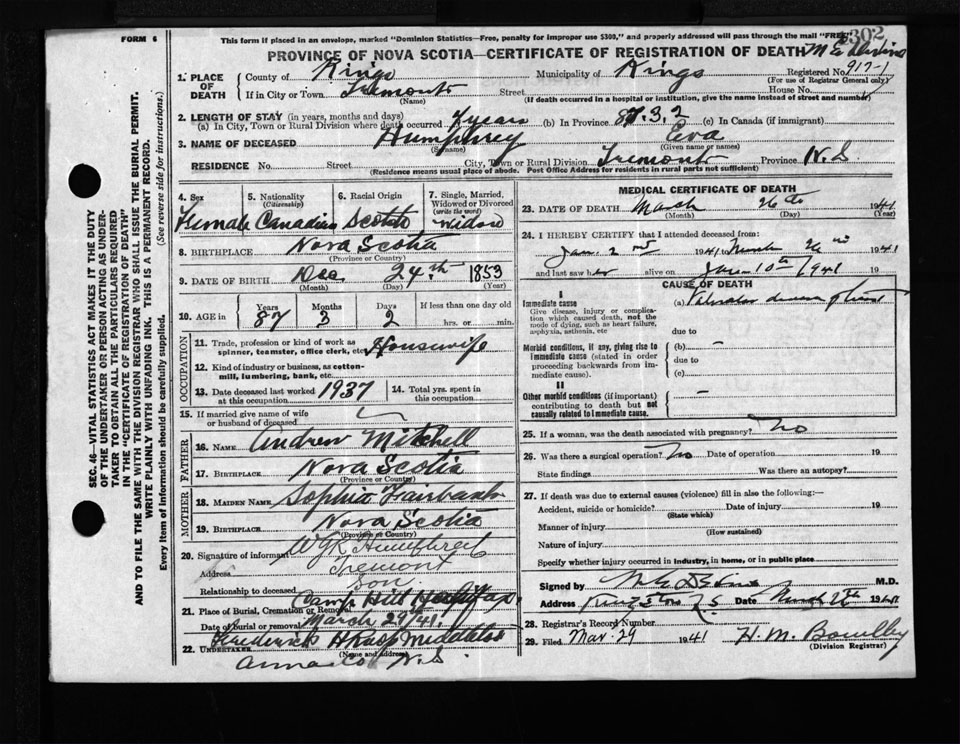 FORM 6
This form if placed in an envelope, marked "Dominion Statistics—Free, penalty for improper use $300," and properly addressed will pass through the mail "FREE"
302
PROVINCE OF NOVA SCOTIA—CERTIFICATE OF REGISTRATION OF DEATH
1. PLACE OF DEATH
County of Kings Municipality of Kings Registered No. 917-1
(For use of Registrar General only)
If in City or Town Tremont Street House No.
(Name) (If death occurred in a hospital or institution, give the name instead of street and number)
2. LENGTH OF STAY (in years, months and days)
(a) In City, Town or Rural Division where death occurred 4 years (b) In Province 87.3.2 (c) In Canada (if immigrant)
3. NAME OF DECEASED Humphrey Eva
(Surname) (Given name or names)
RESIDENCE No. Street City, Town or Rural Division Tremont Province N.S.
(Residence means usual place of abode. Post Office Address for residents in rural parts not sufficient)
4. Sex Female
5. Nationality (Citizenship) Canadian
6. Racial Origin Scotch
7. Single, Married, Widowed or Divorced (write the word) Widow
8. BIRTHPLACE Nova Scotia
(Province or Country)
9. DATE OF BIRTH Dec 24th 1853
(Month) (Day) (Year)
10. AGE in Years Months Days If less than one day old
87 3 2 hrs. or min.
OCCUPATION
11. Trade, profession or kind of work as spinner, teamster, office clerk, etc. Housewife
12. Kind of industry or business, as cotton-mill, lumbering, bank, etc.
13. Date deceased last worked at this occupation 1937
14. Total yrs. spent in this occupation
15. If married give name of wife or husband of deceased
FATHER
16. NAME Andrew Mitchell
17. BIRTHPLACE Nova Scotia
(Province or Country)
MOTHER
18. MAIDEN NAME Sophia Fairbanks
19. BIRTHPLACE Nova Scotia
(Province or Country)
20. Signature of informant
Address Tremont
Relationship to deceased son
21. Place of Burial, Cremation or Removal Camp Hill Halifax
Date of burial or removal March 29/41
22. UNDERTAKER Frederick Middleton
(Name and address)
Anna. Co N.S.
MEDICAL CERTIFICATE OF DEATH
23. DATE OF DEATH March 26th 1941
(Month) (Day) (Year)
24. I HEREBY CERTIFY that I attended deceased from:
Jan. 2nd 1941 1941
and last saw her alive on 1941 19
CAUSE OF DEATH
I
Immediate cause
Give disease, injury or complication which caused death, not the mode of dying, such as heart failure, asphyxia, asthenia, etc
(a)
due to
Morbid conditions, if any, giving rise to immediate cause (stated in order proceeding backwards from immediate cause).
(b) –
due to
(c)
II
Other morbid conditions (if important) contributing to death but not causally related to immediate cause.
–
25. If a woman, was the death associated with pregnancy? No
26. Was there a surgical operation? No Date of operation 19
State findings Was there an autopsy?
27. If death was due to external causes (violence) fill in also the following:—
Accident, suicide or homicide? Date of injury 19
(State which)
Manner of injury
(How sustained)
Nature of injury
Specify whether injury occurred in industry, in home, or in public place
Signed by M.D.
Address Kingston N.S. Date March 1941
28. Registrar's Record Number
29. Filed Mar. 29 1941 H. M. Bowlby
(Division Registrar)
SEC. 46—VITAL STATISTICS ACT MAKES IT THE DUTY
OF THE UNDERTAKER OR PERSON ACTING AS UNDER-
TAKER TO OBTAIN ALL THE PARTICULARS REQUIRED
IN THE "CERTIFICATE OF REGISTRATION OF DEATH"
AND TO FILE THE SAME WITH THE DIVISION REGISTRAR WHO SHALL ISSUE THE BURIAL PERMIT.
WRITE PLAINLY WITH UNFADING INK. THIS IS A PERMANENT RECORD.
Every item of information should be carefully supplied. (See reverse side for instructions.)